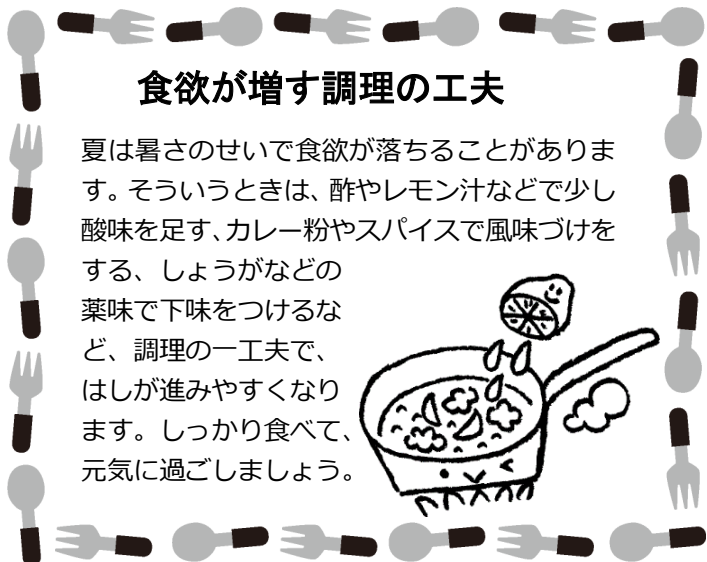 食欲が増す調理の工夫
夏は暑さのせいで食欲が落ちることがありま
す。そういうときは、酢やレモン汁などで少し
酸味を足す、カレー粉やスパイスで風味づけを
する、しょうがなどの
薬味で下味をつけるな
ど、調理の一工夫で、
はしが進みやすくなり
ます。しっかり食べて、
元気に過ごしましょう。